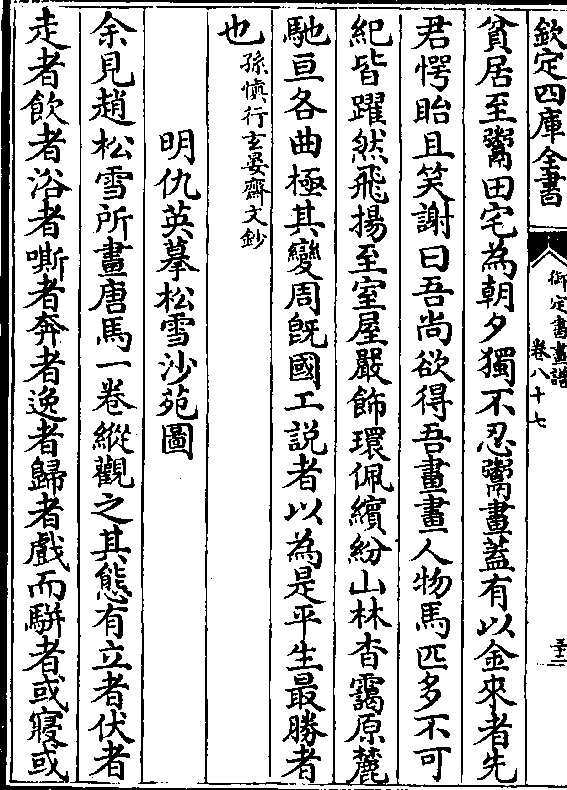 欽定四庫全書
御定書畫譜
卷八十七
五十二
貧居至鬻田宅為朝夕獨不忍鬻畫蓋有以金來者先
君愕眙且笑謝曰吾尚欲得吾畫畫人物馬匹多不可
紀皆躍然飛揚至室屋嚴飾環佩繽紛山林杳靄原麓
馳亘各曲極其變周旣國工説者以為是平生最勝者
也孫慎行玄晏齋文鈔
明仇英摹松雪沙苑圖
余見趙松雪所畫唐馬一卷縱觀之其態有立者伏者
走者飲者浴者嘶者奔者逸者歸者戲而駢者或寢或